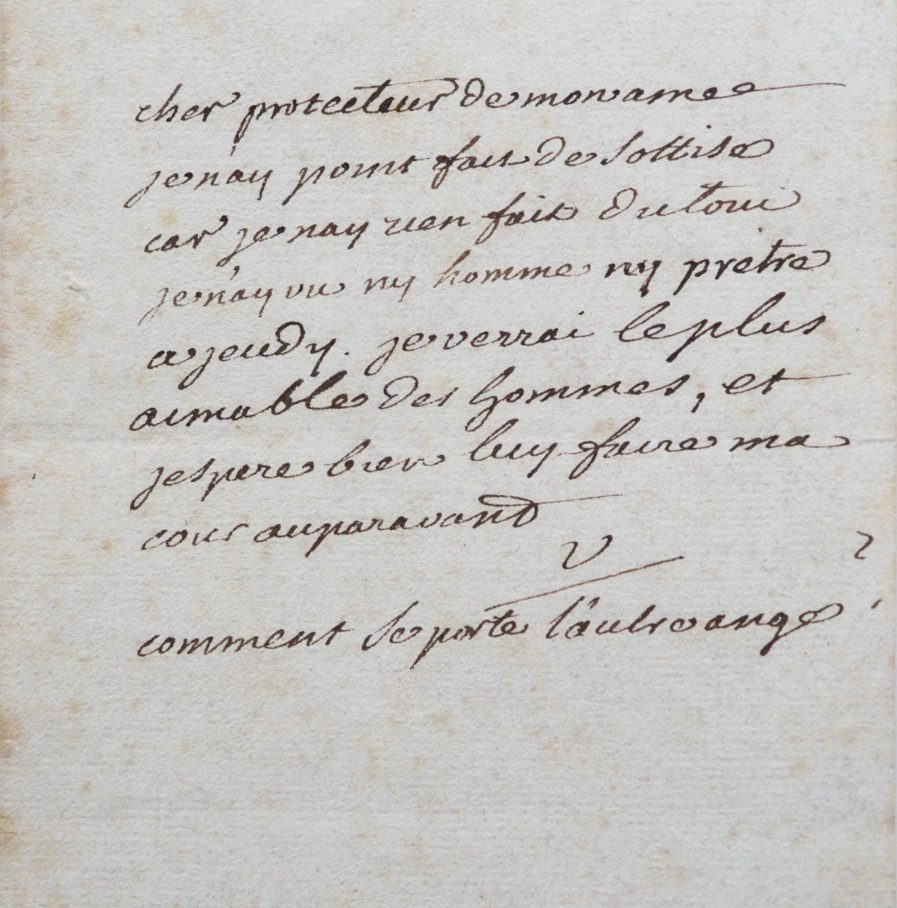 cher protecteur de mon amee
je n'ay point fait de sottise
car je nay rien fait du tout
je n'ay vu ny homme ny prêtre
a jeudy. je verrai le plus
aimable des hommes, et
jespere bien luy faire ma
cour auparavant
V
comment se porte l'autre ange ?